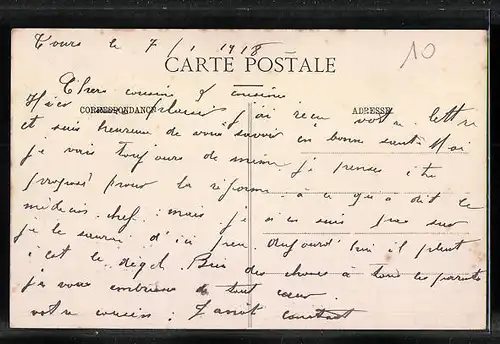 Tours le 7/1 1918
10
CARTE POSTALE
Chers cousin et cousine
CORRESPONDANCE
ADRESSE
Hier plaisir j'ai reçu votre lettre
et suis heureux de vous savoir en bonne santé Moi
je vais toujours de meme je pense être
proposé pour la réforme à ce qu'a dit le
médecin chef: mais je n'en suis pas sur
je le saurai d'ici peu. Aujourd'hui il pleut
c'est le dégel. Bien des choses à tous les parents
je vous embrasse de tout cœur
votre cousin: constant